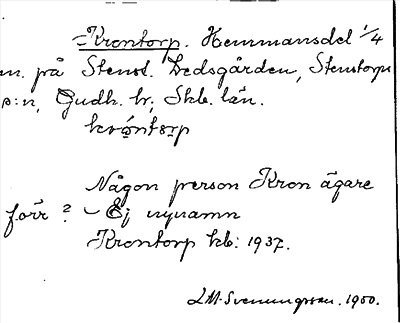 =Krontorp. Hemmansdel 1/4
m. på Stenst. Dedsgården, Stenstorps
s:n, Gudh. hr; Skb. län.
króntorp
Någon person Kron ägare
förr? – Ej nynamn
Krontorp kb: 1937.
LM. Svenungsson. 1950.